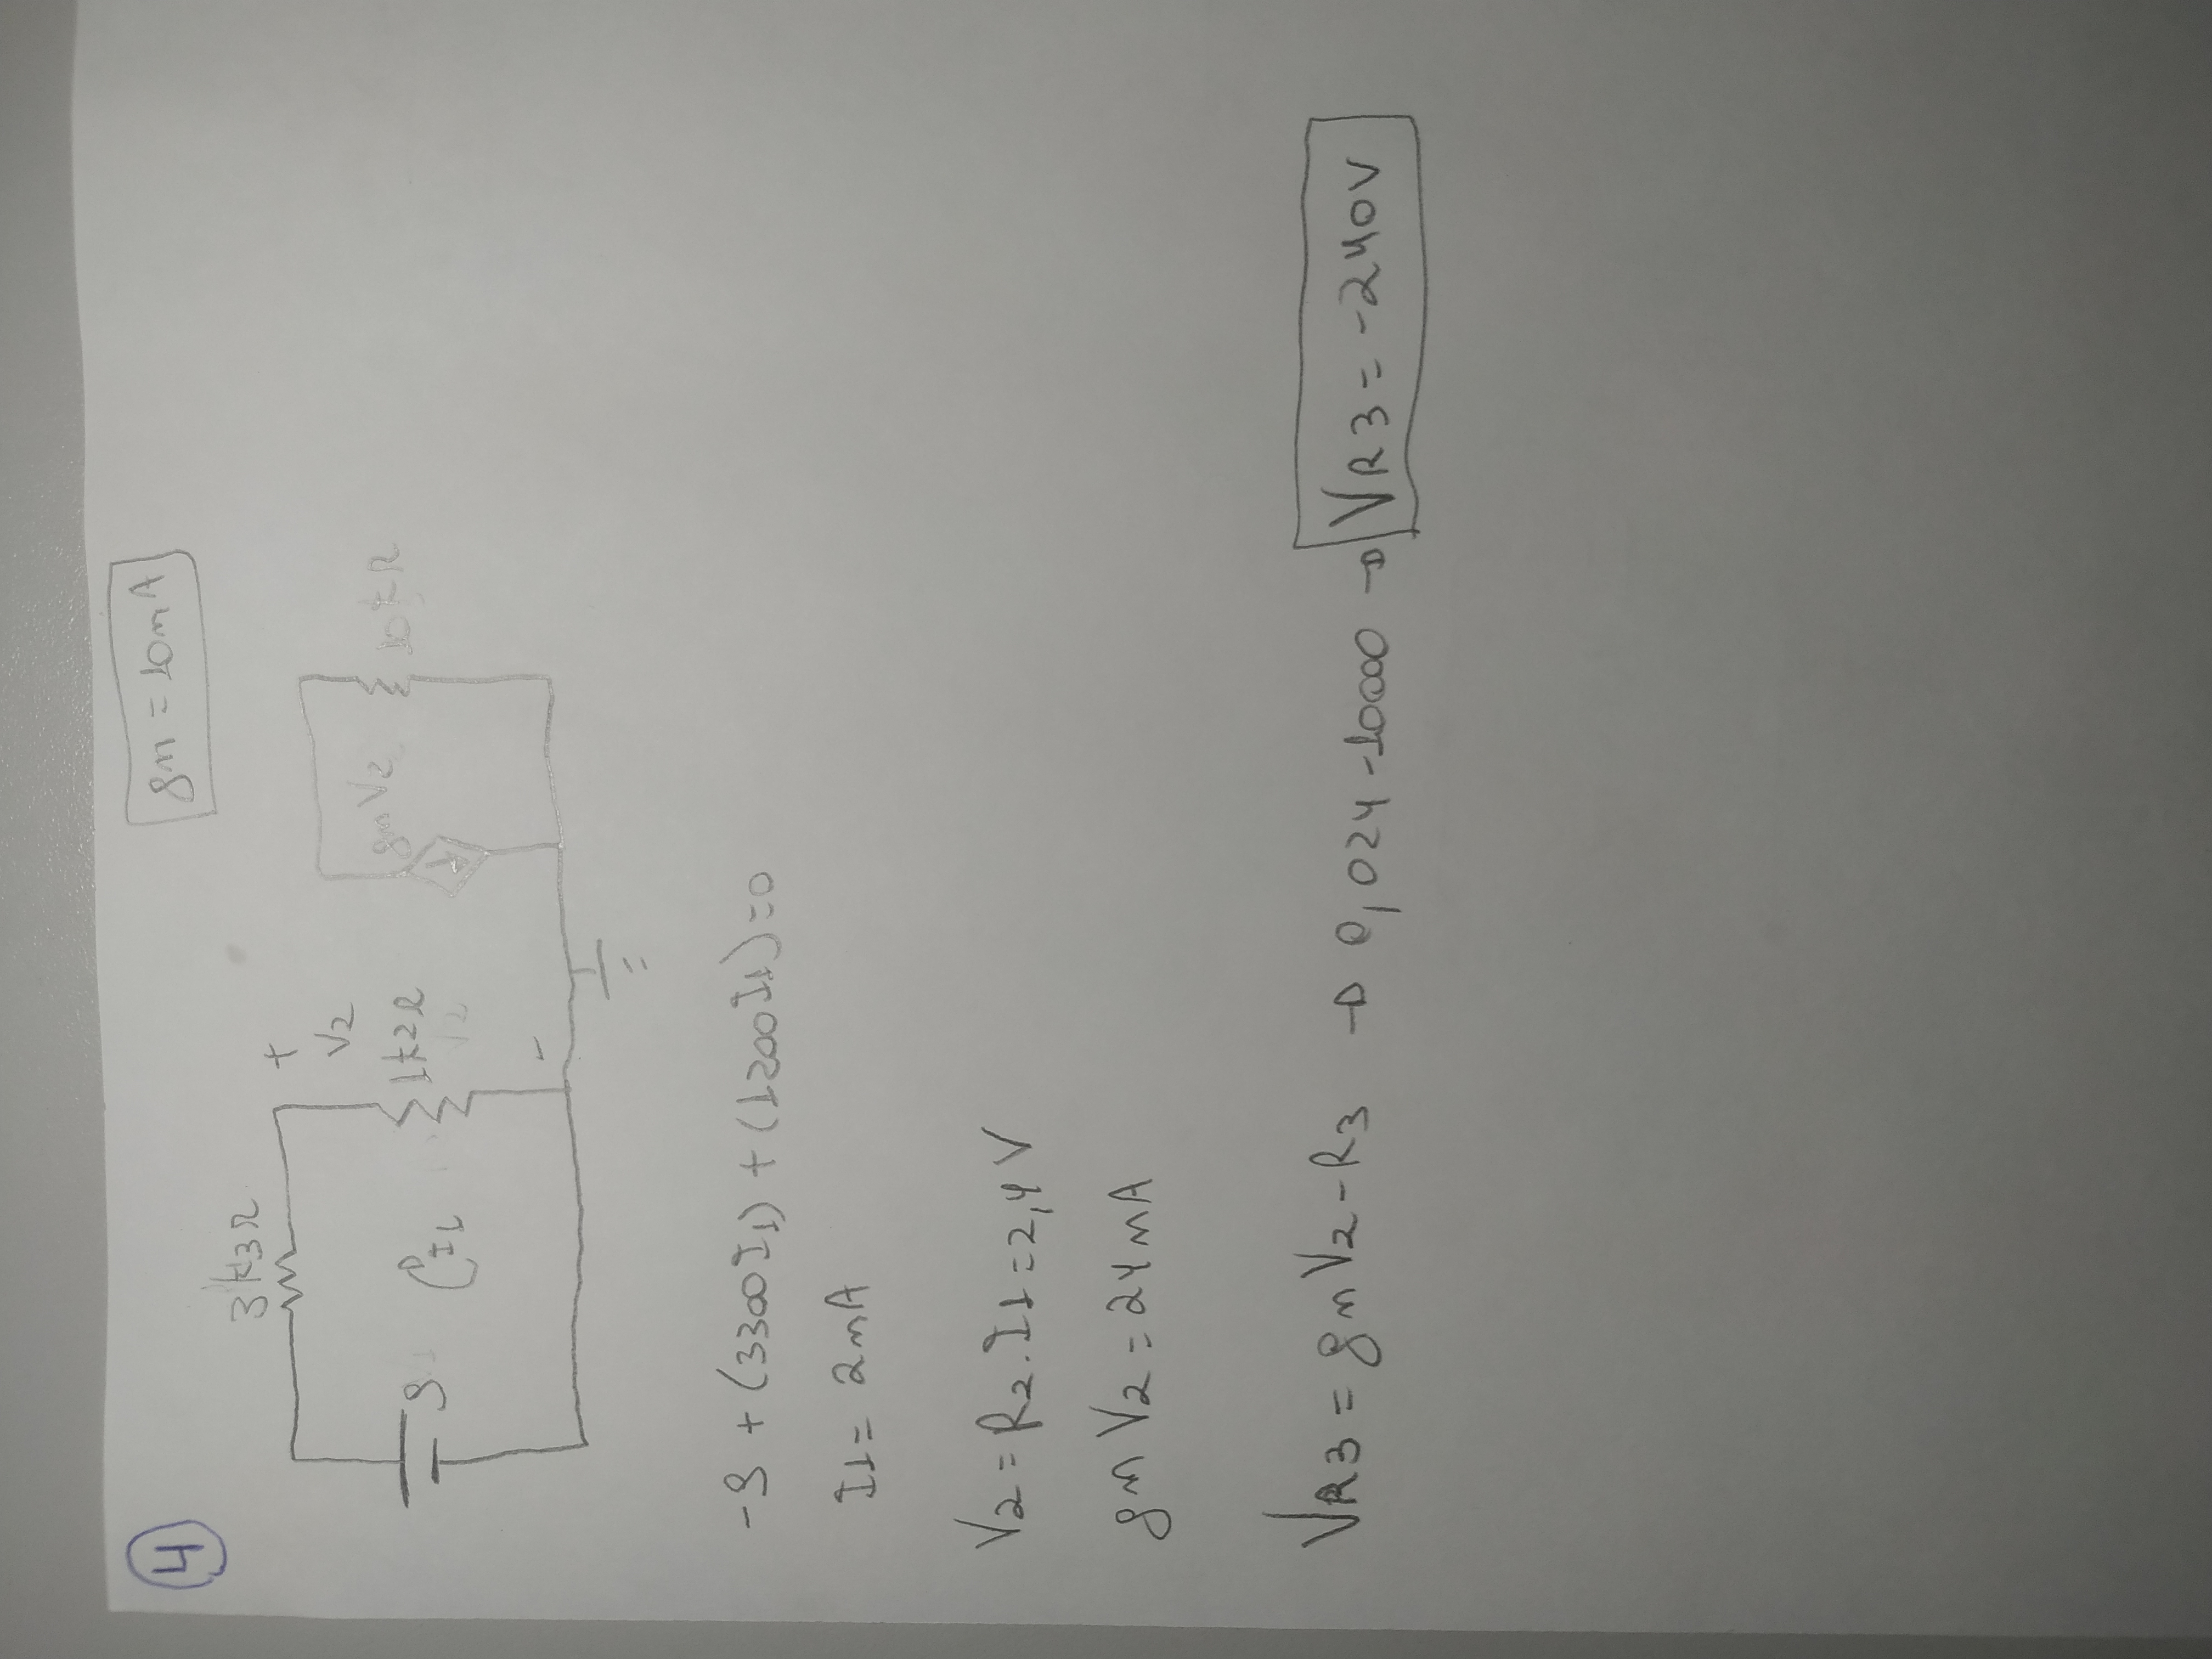 4
gm = 10mA
3k3Ω
+
V2
gmV2
9
I1
1k2Ω
10kΩ
V2
-
-9 + (3300I1) + (1200I1) = 0
I1 = 2mA
V2 = R2.I1 = 2,4 V
gm V2 = 24mA
VR3 = gmV2 - R3 → 0,024 - 10000 → VR3 = -240V